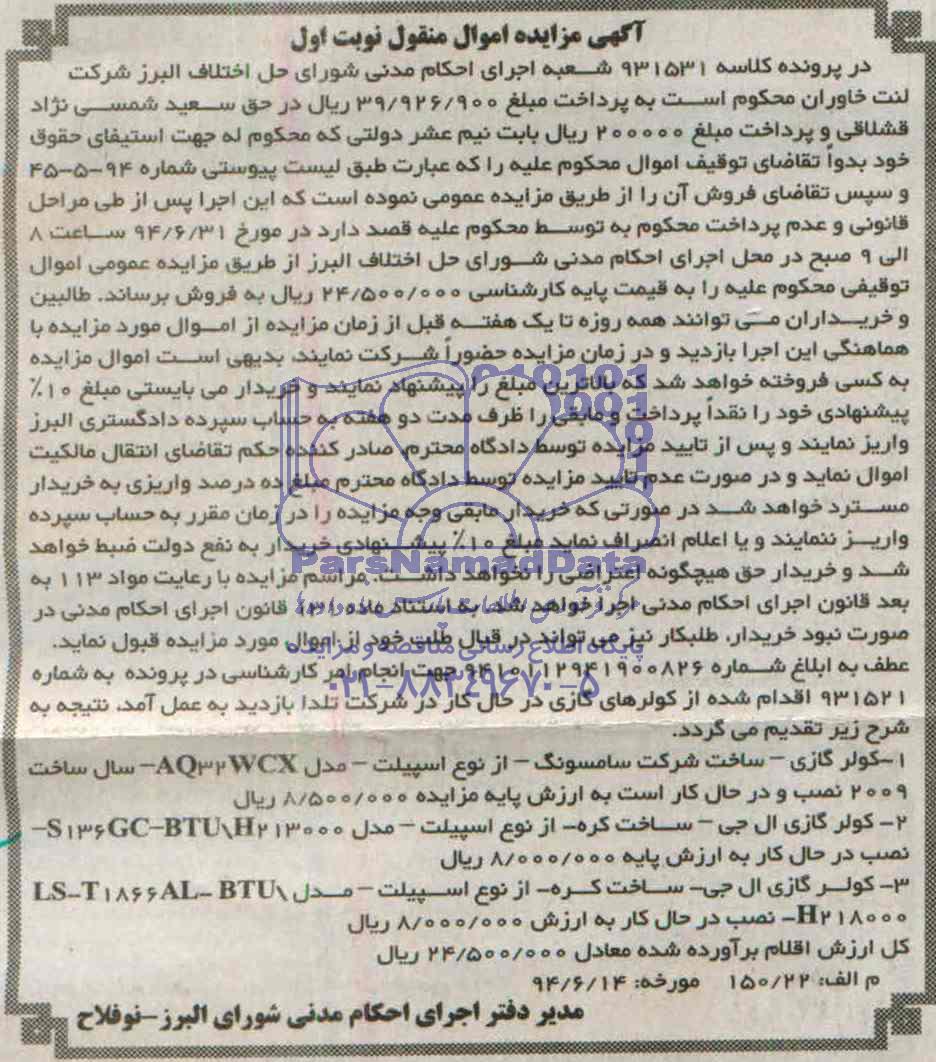 آگهی مزایده اموال منقول نوبت اول
در پرونده کلاسه ۹۳۱۵۳۱ شعبه اجرای احکام مدنی شورای حل اختلاف البرز شرکت
لنت خاوران محکوم است به پرداخت مبلغ ۳۹/۹۲۶/۹۰۰ ریال در حق سعید شمسی نژاد
قشلاقی و پرداخت مبلغ ۲۰۰۰۰۰ ریال بابت نیم عشر دولتی که محکوم له جهت استیفای حقوق
خود بدواً تقاضای توقیف اموال محکوم علیه را که عبارت طبق لیست پیوستی شماره ۹۴-۵-۴۵
و سپس تقاضای فروش آن را از طریق مزایده عمومی نموده است که این اجرا پس از طی مراحل
قانونی و عدم پرداخت محکوم به توسط محکوم علیه قصد دارد در مورخ ۹۴/۶/۳۱ ساعت ۸
الی ۹ صبح در محل اجرای احکام مدنی شورای حل اختلاف البرز از طریق مزایده عمومی اموال
توقیفی محکوم علیه را به قیمت پایه کارشناسی ۲۴/۵۰۰/۰۰۰ ریال به فروش برساند. طالبین
و خریداران می توانند همه روزه تا یک هفته قبل از زمان مزایده از اموال مورد مزایده با
هماهنگی این اجرا بازدید و در زمان مزایده حضوراً شرکت نمایند، بدیهی است اموال مزایده
به کسی فروخته خواهد شد که بالاترین مبلغ را پیشنهاد نمایند و خریدار می بایستی مبلغ ۱۰٪
پیشنهادی خود را نقداً پرداخت و مابقی را ظرف مدت دو هفته به حساب سپرده دادگستری البرز
واریز نمایند و پس از تایید مزایده توسط دادگاه محترم، صادر کننده حکم تقاضای انتقال مالکیت
اموال نماید و در صورت عدم تایید مزایده توسط دادگاه محترم مبلغ ده درصد واریزی به خریدار
مسترد خواهد شد در صورتی که خریدار مابقی وجه مزایده را در زمان مقرر به حساب سپرده
واریز ننمایند و یا اعلام انصراف نماید مبلغ ۱۰٪ پیشنهادی خریدار به نفع دولت ضبط خواهد
شد و خریدار حق هیچگونه اعتراضی را نخواهد داشت. مراسم مزایده با رعایت مواد ۱۱۳ به
بعد قانون اجرای احکام مدنی اجرا خواهد شد. به استناد ماده ۱۳۱ قانون اجرای احکام مدنی در
صورت نبود خریدار، طلبکار نیز می تواند در قبال طلب خود از اموال مورد مزایده قبول نماید.
عطف به ابلاغ شماره ۹۴۱۰۱۱۲۹۴۱۹۰۰۸۲۶ جهت انجام امر کارشناسی در پرونده به شماره
۹۳۱۵۲۱ اقدام شده از کولرهای گازی در حال کار در شرکت تلدا بازدید به عمل آمد، نتیجه به
شرح زیر تقدیم می گردد.
۱-کولر گازی - ساخت شرکت سامسونگ - از نوع اسپیلت - مدل AQ۳۲WCX- سال ساخت
۲۰۰۹ نصب و در حال کار است به ارزش پایه مزایده ۸/۵۰۰/۰۰۰ ریال
۲- کولر گازی ال جی - ساخت کره- از نوع اسپیلت - مدل S۱۳۶GC-BTU\H۲۱۳۰۰۰-
نصب در حال کار به ارزش پایه ۸/۰۰۰/۰۰۰ ریال
۳- کولر گازی ال جی- ساخت کره- از نوع اسپیلت - مدل LS-T۱۸۶۶AL- BTU\
H۲۱۸۰۰۰- نصب در حال کار به ارزش ۸/۰۰۰/۰۰۰ ریال
کل ارزش اقلام برآورده شده معادل ۲۴/۵۰۰/۰۰۰ ریال
م الف: ۱۵۰/۲۲ مورخه: ۹۴/۶/۱۴
مدیر دفتر اجرای احکام مدنی شورای البرز-نوفلاح
ParsNamadData
پایگاه اطلاع رسانی مناقصه و مزایده
۰۲۱-۸۸۳۴۹۶۷۰-۵